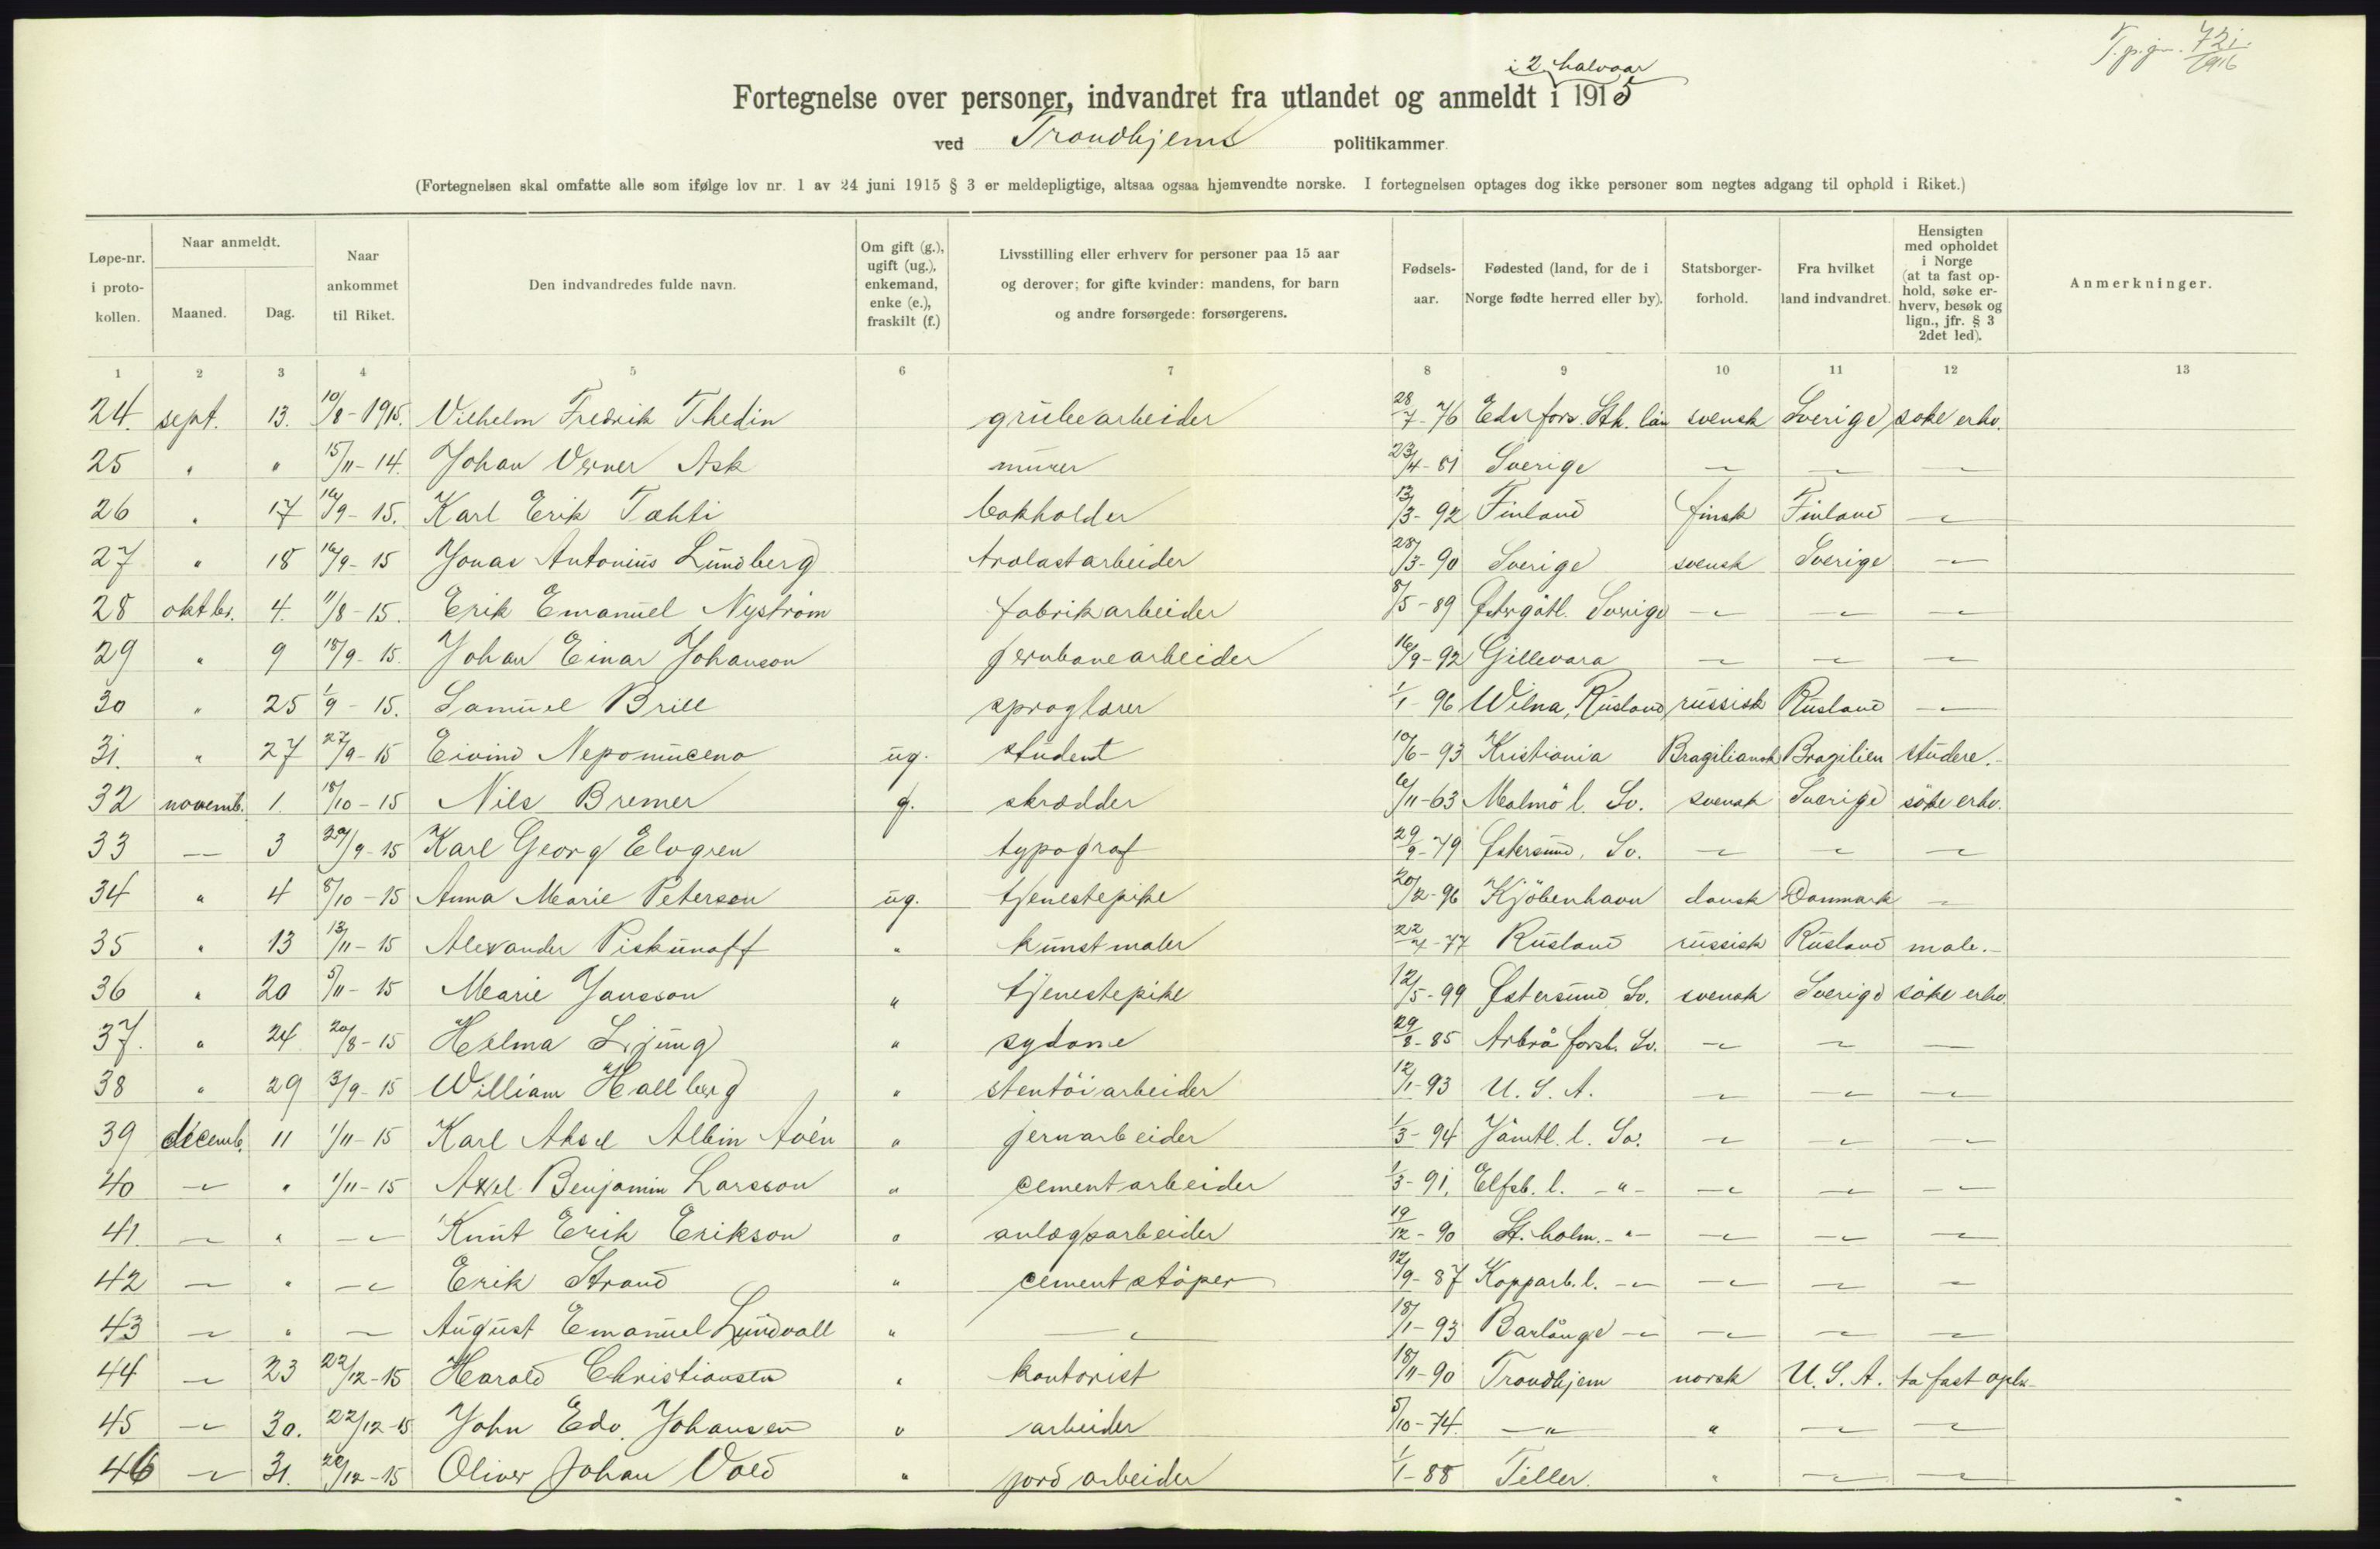 T.p.jn. 721/1916
i 2. halvaar
Fortegnelse over personer, indvandret fra utlandet og anmeldt i 1915
ved Trondhjems politikammer
(Fortegnelsen skal omfatte alle som ifølge lov nr. 1 av 24 juni 1915 § 3 er meldepligtige, altsaa ogsaa hjemvendte norske. I fortegnelsen optages dog ikke personer som negtes adgang til ophold i Riket.)
Løpe-nr. i proto-kollen. | Naar anmeldt. Maaned. | Dag. | Naar ankommet til Riket. | Den indvandredes fulde navn. | Om gift (g.), ugift (ug.), enkemand, enke (e.), fraskilt (f.) | Livsstilling eller erhverv for personer paa 15 aar og derover; for gifte kvinder: mandens, for barn og andre forsørgede: forsørgerens. | Fødsels-aar. | Fødested (land, for de i Norge fødte herred eller by). | Statsborger-forhold. | Fra hvilket land indvandret. | Hensigten med opholdet i Norge (at ta fast op-hold, søke er-hverv, besøk og lign., jfr. § 3 2det led). | Anmerkninger.
1 2 3 4 5 6 7 8 9 10 11 12 13
24. sept. 13. 10/8-1915. Vilhelm Fredrik Thedin grubearbeider 28/7-76 Edefors. Sth. län svensk Sverige søke erhv.
25 " " 15/11-14. Johan Verner Ask murer 23/4-81 Sverige — — —
26 " 17 16/9-15. Karl Erik Tahti bokholder 13/3-92 Finland finsk Finland —
27 " 18 16/9-15 Jonas Antonius Lundberg trælastarbeider 28/3-90 Sverige svensk Sverige —
28 oktbr. 4. 11/8-15. Erik Emanuel Nyström fabrikarbeider 8/5-89 Østrgötl. Sverige — — —
29 " 9 18/9-15. Johan Einar Johanson jernbanearbeider 16/9-92 Gillevara — — —
30 " 25 1/9-15. Samuel Brill sproglærer 1/1-96 Wilna, Rusland russisk Rusland —
31. " 27 27/9-15 Eivind Nepomuceno ug. student 10/6-93 Kristiania Braziliansk Brazilien studere.
32 novemb. 1. 18/10-15 Nils Bremer g. skrædder 6/11-63 Malmö l. Sv. svensk Sverige söke erhv.
33 — 3 29/9-15 Karl Georg Elvgren typograf 29/9-79 Østersund, Sv. — — —
34 " 4 8/10-15 Anna Marie Petersen ug. tjenestepike 20/12-96 Kjöbenhavn dansk Danmark —
35 " 13 13/11-15 Alexander Piskunoff " kunstmaler 22/4-77 Rusland russisk Rusland male.
36 " 20 5/11-15 Marie Jansson " tjenestepike 12/5-99 Østersund, Sv. svensk Sverige söke erhv.
37. " 24 20/8-15 Helma Ljung " sydame 29/8-85 Arbrå forsl. Sv. — — —
38 " 29 3/9-15 William Hallberg " stentöiarbeider 12/1-93 U. S. A. — — —
39 decemb. 11 1/11-15 Karl Aksel Albin Avén " jernarbeider 1/3-94 Jämtl. l. Sv. — — —
40 — " 1/11-15 Axel Benjamin Larsson " cementarbeider 1/3-91. Elfsb. l. -"- — — —
41. — " — Knut Erik Erikson " anlægsarbeider 19/12-90 St.holm. -"- — — —
42 — " — Erik Strand " cementstöper 12/9-87 Kopparb. l. — — — —
43 — " — August Emanuel Lundvall " — 18/1-93 Barlänge — — — —
44 — 23 22/12-15 Harald Christiansen " kontorist 18/11-90 Trondhjem norsk U. S. A. ta fast oph.
45 — 30. 22/12-15 John Edv. Johansen " arbeider 5/10-74. —"— " — —
46 — 31. 22/12-15 Oliver Johan Vold " jordarbeider 1/1-88 Tiller. " — —